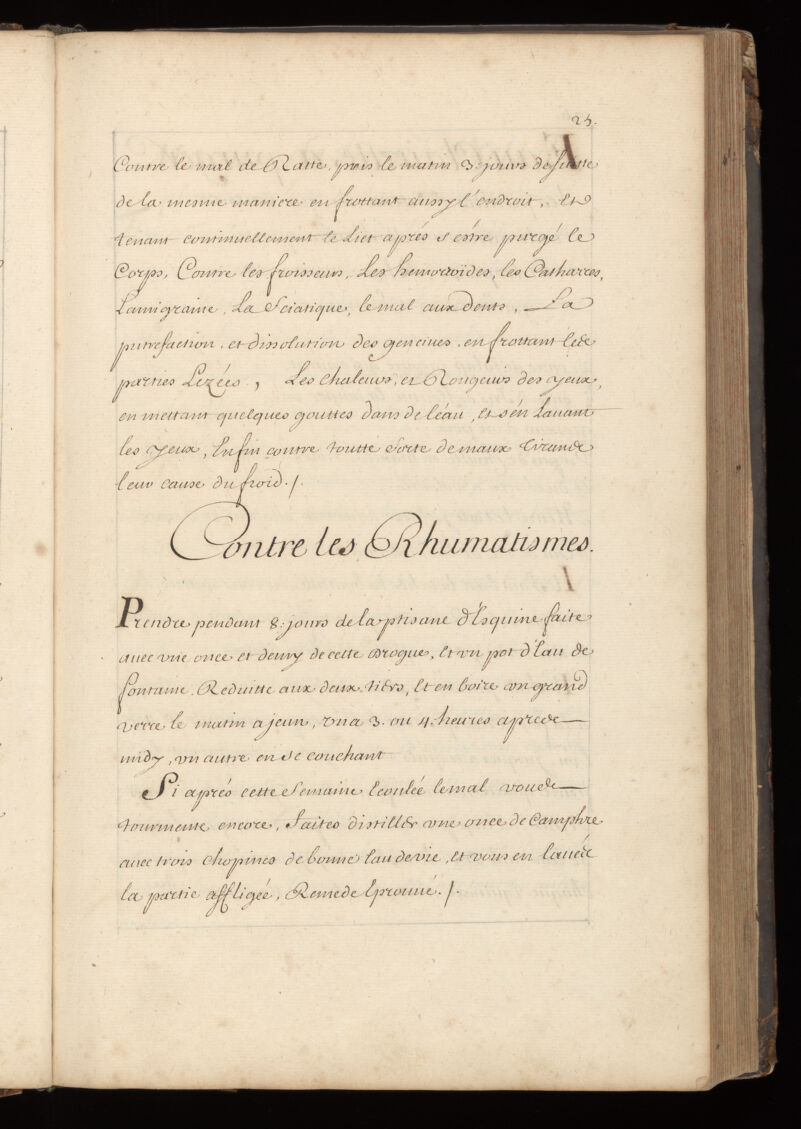 25.
Contre le mal de Ratte, pris le matin 3. jours de suitte
de la mesme maniere en frottant aussy l'endroit, Et
tenant continuellement le Lict aprés s'estre purgé le
Corps, Contre les froisseurs, Les hemorroïdes, les Catharres,
Lamigraine, La Sciatique, le mal aux dents, La
putrefaction, et dissolution des gencives, en frottant les
parties Lezées, Les chaleurs, et Rougeurs des yeux,
en mettant quelques gouttes dans de léau, Et s'én Lavant
les yeux, Enfin contre toutte sorte de maux tirants
leur cause du froid./.
Contre les Rhumatismes.
Prendre pendant 8. jours de la ptisane d'Esquine faite
avec vne once et demy de cette drogue, Et vn pot d'Eau de
fontaine. Reduitte aux deux tiers, Et en boire vn grand
verre le matin a jeun, vn a 3. ou 4. heures apres
midy, vn autre en se couchant
Si aprés cette semaine Ecoulée le mal vous
tourmente encore, faites distiller vne once de Camphre
avec trois chopines de bonne Eau de vie, Et vous en lavéz
la partie affligeé, Remede Eprouvé./.